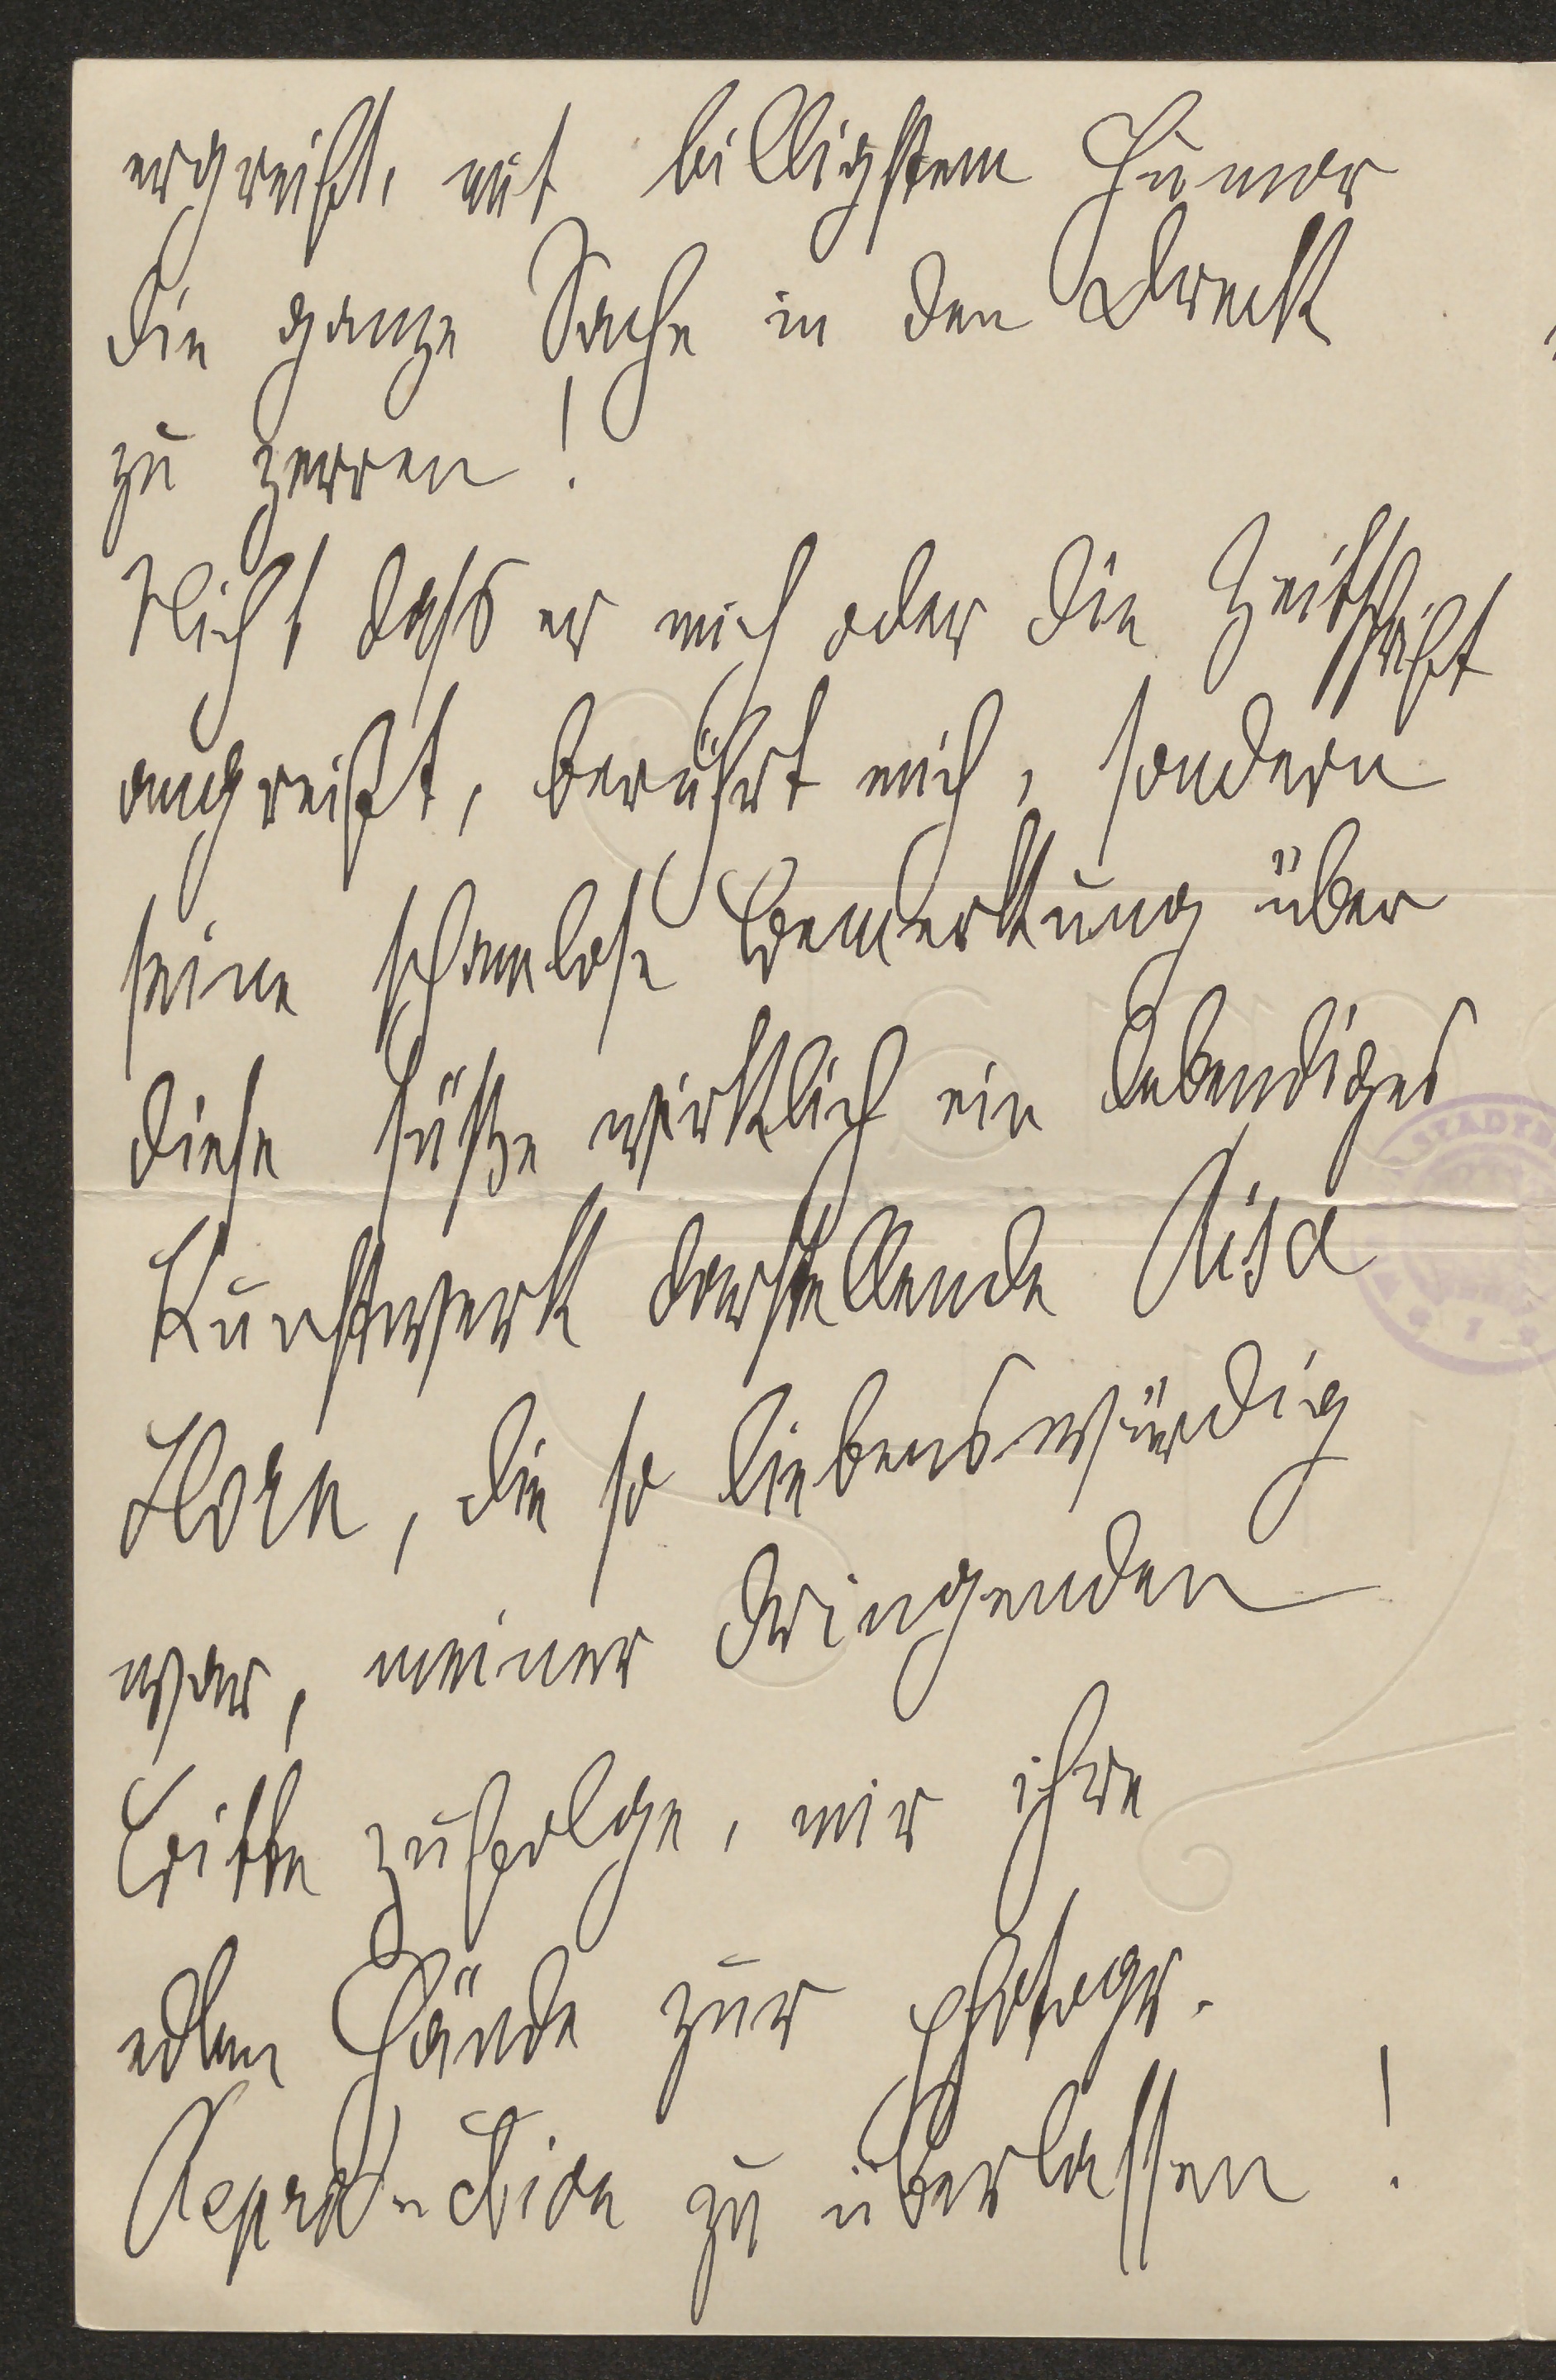 ergreift, mit billigstem Humor
die ganze Sache in den Dreck
zu zerren!
Nicht dass er mich oder die Zeitschrift
angreift, berührt mich, sondern
seine schamlose Bemerkung über
diese süße wirklich ein lebendiges
Kunstwerk darstellende Risa
Horn, die so liebenswürdig
war, meiner dringenden
Bitte zufolge, mir ihre
edlen Hände zur photogr.
Reproduction zu überlassen!